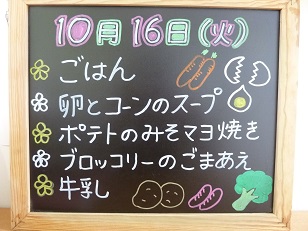 10月16日(火)
ごはん
卵とコーンのスープ
ポテトのみそマヨ焼き
ブロッコリーのごまあえ
牛乳